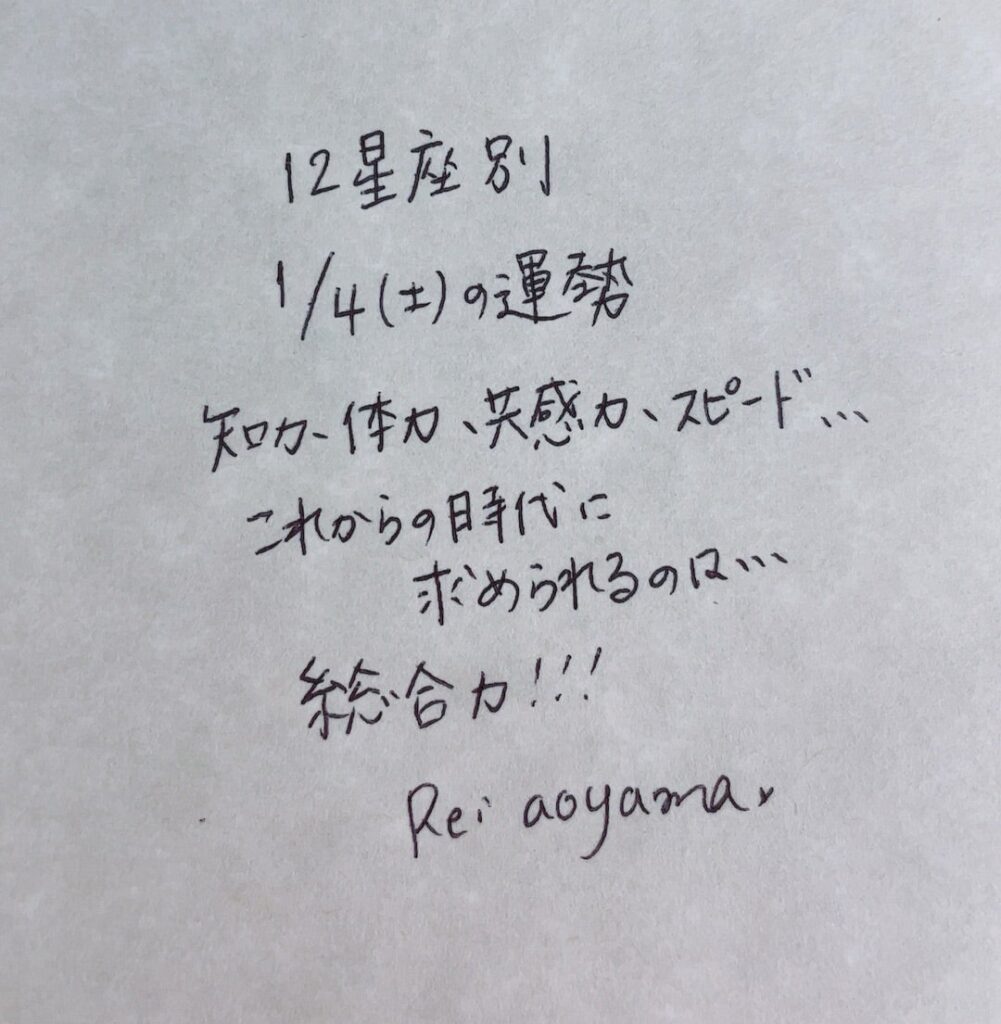 12星座別
1/4(土)の運勢
知力、体力、共感力、スピード...
これからの時代に
求められるのは...
総合力!!!
Rei aoyama.